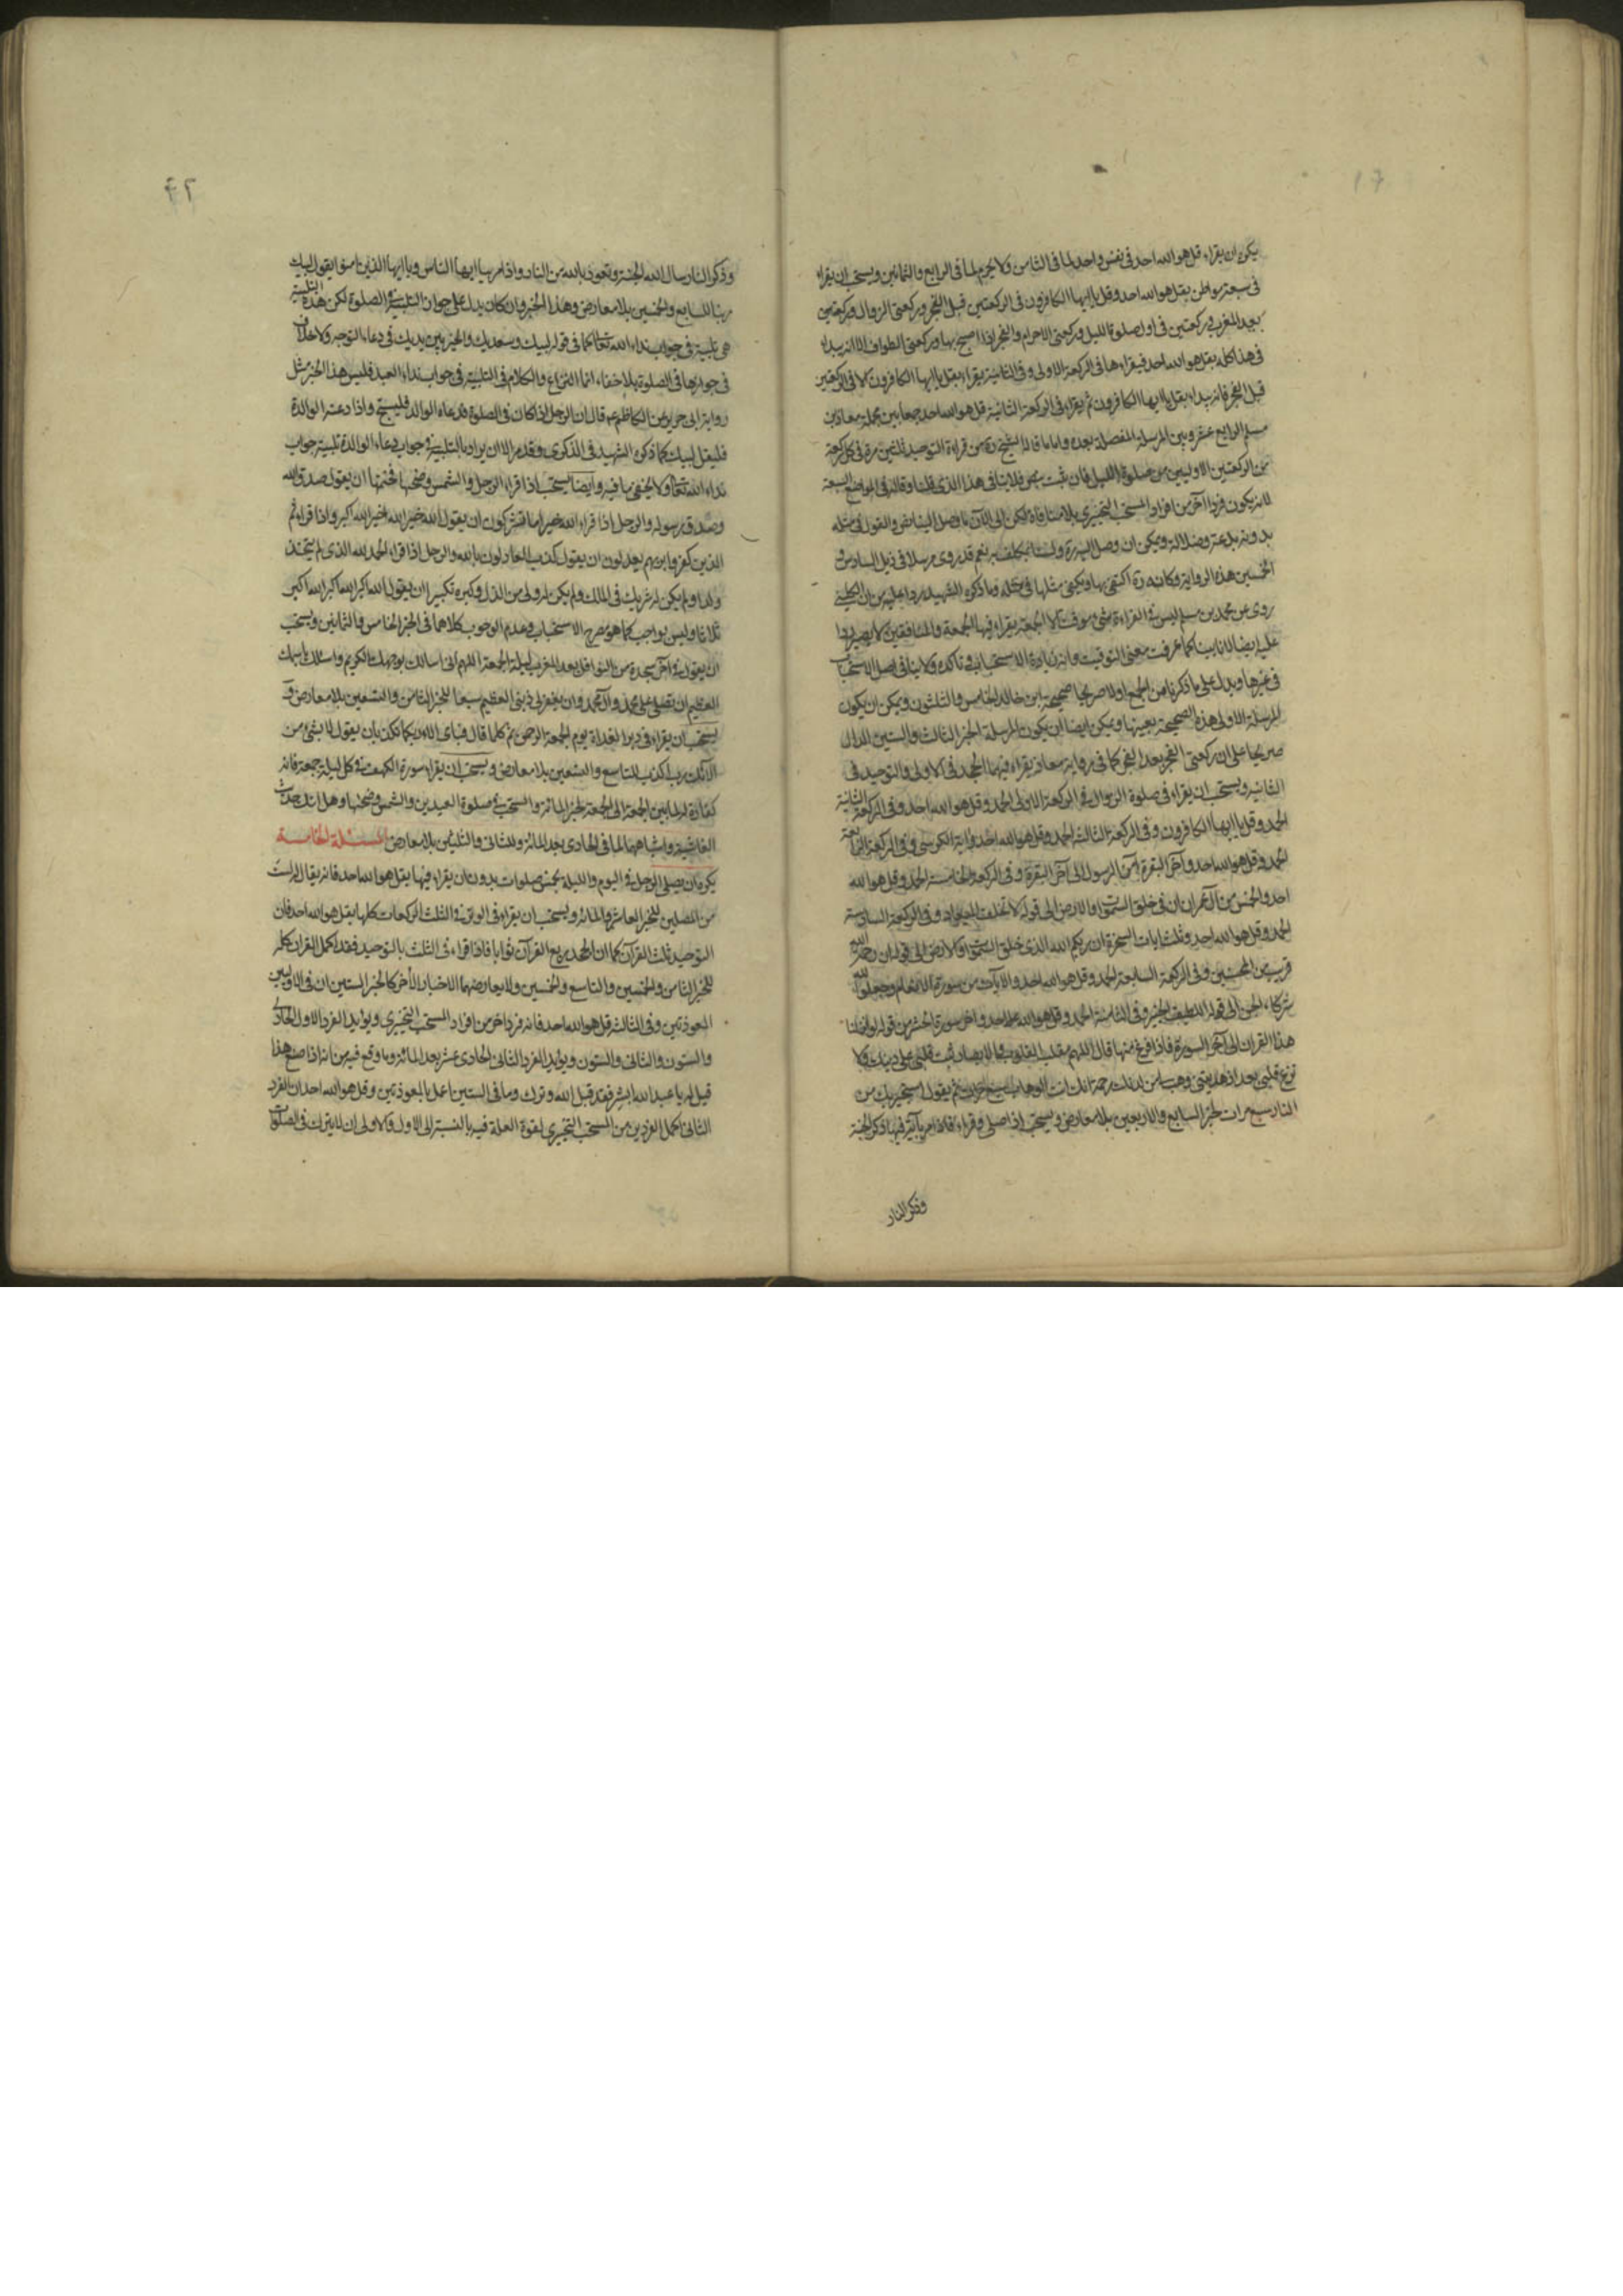 ٤١
يكره ان يقراء قل هو الله احد فى نفس واحد لما فى الثامن ولا يحرم لما فى الرابع والثمانين ويستحب ان يقراء
فى سبعة مواطن بقل هو الله احد وقل يا ايها الكافرون فى الركعتين قبل الفجر وركعتى الزوال وركعتين
بعد المغرب وركعتين فى اول صلوة الليل وركعتى الاحرام والفجر اذا اصبح بها وركعتى الطواف الا انه يبداء
فى هذا كله بقل هو الله احد فيقراءها فى الركعة الاولى وفى الثانية يقراء بقل يا ايها الكافرون الا فى الركعتين
قبل الفجر فانه يبداء بقل يا ايها الكافرون ثم يقراء فى الركعة الثانية قل هو الله احد جمعا بين مجملة معاذ بن
مسلم الرابع عشر وبين المرسلة المفصلة بعده واما ما قاله الشيخ ره من قراءة التوحيد ثلثين مرة فى كل ركعة
من الركعتين الاوليين من صلوة الليل فان ثبت بنص فلا ينافى هذا الذى قلنا وقاله فى المواضع السبعة
لانه يكون فردا آخر من افراد المستحب التخييرى بلا منافاة لكن الى الآن ما وصل الينا نص والقول فى مثله
بدونه بدعة وضلالة ويمكن ان وصل اليه ره ولسنا بمكلف به نعم قد روى مرسلا فى ذيل السادس و
الخمسين هذه الرواية وكانه ره اكتفى بها ويكفى مثلها فى مثله وما ذكره الشهيد ردا عليه من ان الكلينى
روى عن محمد بن مسلم ليس فى القراءة شئ موقت الا الجمعة يقراء فيها الجمعة والمنافقين لا يصير ردا
عليه ايضا لانا بينا كما عرفت معنى التوقيت وانه زيادة الاستحباب وتاكده ولا ينافى اصل الاستحباب
فى غيرها ويدل على ما ذكرنا من الجمع اولا صريحا صحيحة ابن خالد الخامس والثلثون ويمكن ان يكون
المرسلة الاولى هذه الصحيحة بعينها ويمكن ايضا ان يكون المرسلة الخبر الثالث والستين الدال
صريحا على ان ركعتى الفجر بعد الفجر كما فى رواية معاذ يقراء فيهما الجحد فى الاولى والتوحيد فى
الثانية ويستحب ان يقراء فى صلوة الزوال فى الركعة الاولى الحمد وقل هو الله احد وفى الركعة الثانية
الحمد وقل يا ايها الكافرون وفى الركعة الثالثة الحمد وقل هو الله احد واية الكرسى وفى الركعة الرابعة
الحمد وقل هو الله احد وآخر البقرة آمن الرسول الى آخر البقرة وفى الركعة الخامسة الحمد وقل هو الله
احد والخمس من آل عمران ان فى خلق السموات والارض الى قوله لا تخلف الميعاد وفى الركعة السادسة
الحمد وقل هو الله احد وثلث ايات السخرة ان ربكم الله الذى خلق السموات والارض الى قوله ان رحمة الله
قريب من المحسنين وفى الركعة السابعة الحمد وقل هو الله احد والآيات من سورة الانعام وجعلوا لله
شركاء الجن الى قوله اللطيف الخبير وفى الثامنة الحمد وقل هو الله احد واخر سورة الحشر من قوله لو انزلنا
هذا القران الى آخر السورة فاذا فرغ منها قال اللهم مقلب القلوب والابصار ثبت قلبى على دينك ولا
تزغ قلبى بعد اذ هديتنى وهب لى من لدنك رحمة انك انت الوهاب سبع مرات ثم يقول استجير بك من
النار سبع مرات لخبر السابع والاربعين بلا معارض ويستحب اذا صلى وقراء فاذا مر بآية فيها ذكر الجنة
وذكر النار
٤٢
وذكر النار سال الله الجنة وتعوذ بالله من النار واذا مر بيا ايها الناس ويا ايها الذين امنوا يقول لبيك
ربنا للسابع والخمسين بلا معارض وهذا الخبر وان كان يدل على جواز التلبية فى الصلوة لكن هذه التلبية
هى تلبية فى جواب نداء الله تعالى كما فى قوله لبيك وسعديك والخير بين يديك فى دعاء التوجه ولا خلاف
فى جوازها فى الصلوة بلا خفاء انما النزاع والكلام فى التلبية فى جواب نداء العبد فليس هذا الخبر مثل
رواية ابى جرير عن الكاظم ع قال ان الرجل اذا كان فى الصلوة فدعاه الوالد فليسبح واذا دعته الوالدة
فليقل لبيك كما ذكره الشهيد فى الذكرى وقد مر الا ان يراد بالتلبية فى جواب دعاء الوالدة تلبية جواب
نداء الله تعالى ولا يخفى ما فيه وايضا يستحب اذا قراء الرجل والشمس وضحيها فختمها ان يقول صدق الله
وصدق رسوله والرجل اذا قراء الله خير اما تشركون ان يقول الله خير الله خير الله اكبر واذا قراء ثم
الذين كفروا بربهم يعدلون ان يقول كذب العادلون بالله والرجل اذا قراء الحمد لله الذى لم يتخذ
ولدا ولم يكن له شريك فى الملك ولم يكن له ولى من الذل وكبره تكبيرا ان يقول الله اكبر الله اكبر الله اكبر
ثلاثا وليس بواجب كما هو مصرح الاستحباب وعدم الوجوب كلاهما فى الخبر الخامس والثمانين ويستحب
ان يقول فى آخر سجدة من النوافل بعد المغرب ليلة الجمعة اللهم انى اسالك بوجهك الكريم واسئلك باسمك
العظيم ان تصلى على محمد وآل محمد وان يغفر لى ذنبى العظيم سبعا للخبر الثامن والتسعين بلا معارض و
يستحب ان يقراء فى دبر الغداة يوم الجمعة الرحمن ثم كلما قال فباى الاء ربكما تكذبان يقول لا بشئ من
الآئك رب اكذب للتاسع والتسعين بلا معارض ويستحب ان يقراء سورة الكهف فى كل ليلة جمعة فانه
كفارة له لما بين الجمعة الى الجمعة لخبر المائة والمستحب فى صلوة العيدين والشمس وضحيها وهل اتاك حديث
الغاشية واشباههما لما فى الحادى بعد المائة وللثانى والثلثين بلا معارض المسئلة الخامسة
يكره ان يصلى الرجل فى اليوم والليلة بخمس صلوات بدون ان يقراء فيها بقل هو الله احد فانه يقال له لست
من المصلين للخبر العاشر والمائة ويستحب ان يقراء فى الوتر فى الثلث الركعات كلها بقل هو الله احد فان
التوحيد ثلث القرآن كما ان الجحد ربع القرآن ثوابا فاذا قراء فى الثلث بالتوحيد فقد اكمل القران كله
للخبر الثامن والخمسين والتاسع والخمسين ولا يعارضهما الاخبار الأخر كالخبر الستين ان فى الاوليين
المعوذتين وفى الثالثة قل هو الله احد فانه فرد اخر من افراد المستحب التخييرى ويؤيد الفرد الاول الحادى
والستون والثانى والستون ويؤيد الفرد الثانى الحادى عشر بعد المائة وما وقع فيه من انه اذا صنع هذا
قيل له يا عبد الله ابشر فقد قبل الله وترك وما فى الستين اعمل بالمعوذتين وقل هو الله احد ان الفرد
الثانى اكمل الفردين من المستحب التخييرى لقوة العلة فيه بالنسبة الى الاول والاولى ان لا يترك فى الصلوة